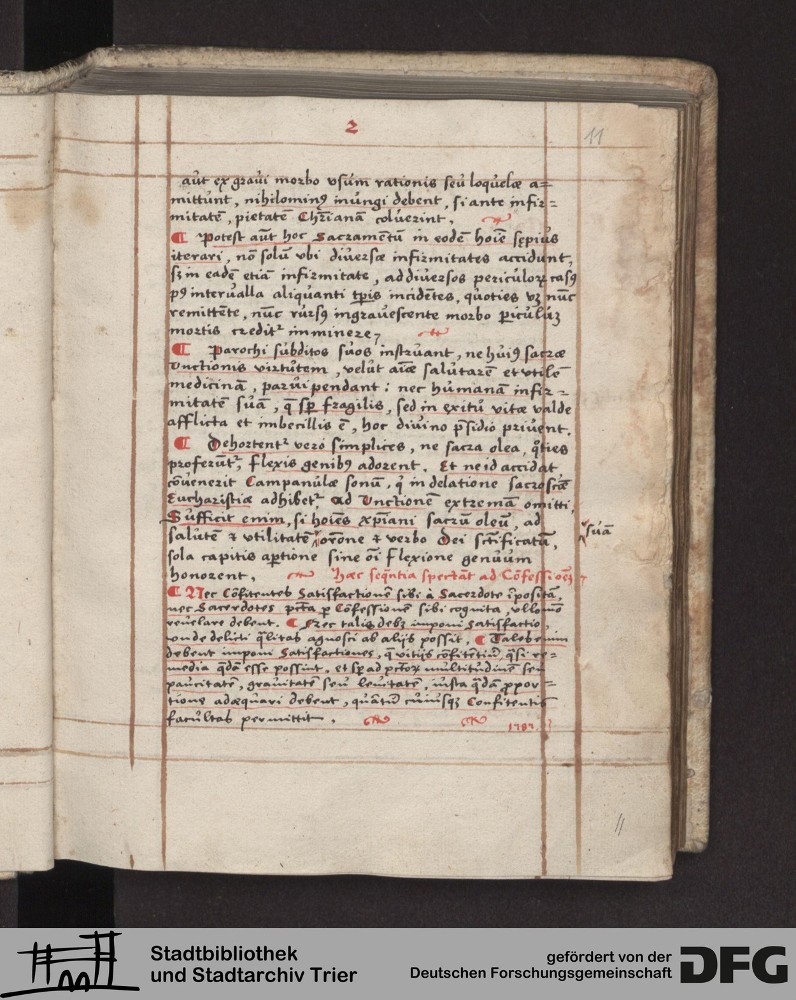 2
11
aut ex graui morbo vsum rationis seu loquelæ a=
mittunt, nihilominꝰ inungi debent, si ante infir=
mitatē, pietatem Chr̄ianā coluerint.
¶ Potest aut̄ hoc Sacramentū in eodē hoīe sępius
iterari, nō solū vbi diuersæ infirmitates accidunt,
in eadē etiā infirmitate, ad diuersos periculoꝝ casꝰ
pꝰ interualla aliquanti tp̄is incidētes, quoties nūc
remittēte, nūc rursꝰ ingrauescente morbo periculū
mortis credit᷑ imminere,
¶ Parochi subditos suos instruant, ne huiꝰ sacræ
Vnctionis virtutem, velut aīæ salutarē et vtilē
medicinā, parui pendant: nec humanā infir=
mitatē suā, q̄ sp̄ fragilis, sed in exitu vitæ valde
afflicta et imbecillis ē, hoc diuino p̄sidio priuent.
¶ Dehortent᷑ vero simplices, ne sacra olea, q̄ties
proferunt᷑, flexis genibꝰ adorent. Et ne id accidat
cōuenerit Campanulæ sonū, q̇ in delatione sacroscæ
Eucharistiæ adhibet᷑ ad Vnctionē extremam omitti.
Sufficit enim, si hoīes xp̄iani sacrū oleū, ad
salutē & vtilitatē orōne & verbo Dei sc̄ificatū,
suā
sola capitis ap̄tione sine oī flexione genuum
honorent. Hæc seq̄ntia spectāt ad Cōfessioē
¶ Nec Cōfitentes Satisfactionē sibi à Sacerdote īpositā,
nec Sacerdotes pctā p Cōfessionē sibi cognita, vllomō
reuelare debent. ¶ Nec talis debꝫ imponi Satisfactio,
vnde delicti q̄litas agnosci ab alijs possit. ¶ Tales enim
debent imponi Satisfactiones, q̄ vitijs cōfitētiū, q̄si re=
media q̄dā esse possint, et sp̄ ad pctoꝝ multitudinē seu
paucitatē, grauitatē seu leuitatē, iusta q̄dā propor=
tione adæquari debent, quātū cuiusqꝫ Confitentis
facultas permittit.
11
Stadtbibliothek
und Stadtarchiv Trier
gefördert von der
Deutschen Forschungsgemeinschaft
DFG